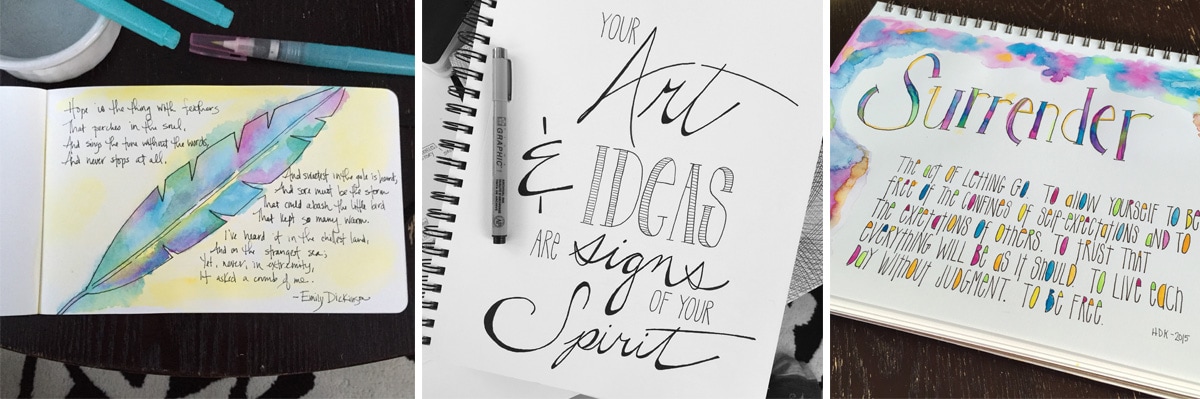 Hope is the thing with feathers
That perches in the soul,
And sings the tune without the words,
And never stops at all.
And sweetest in the gale is heard,
And sore must be the storm
That could abash the little bird
That kept so many warm.
I've heard it in the chillest land,
And on the strangest sea;
Yet, never, in extremity,
It asked a crumb of me.
-Emily Dickinson
YOUR
Art
&
IDEAS
ARE signs
OF YOUR
Spirit
GRAPHIC 1
Surrender
The act of letting go. To allow yourself to be
free of the confines of self-expectations and to
the expectations of others. To trust that
everything will be as it should. To live each
day without judgment. To be free.
HDK-2015